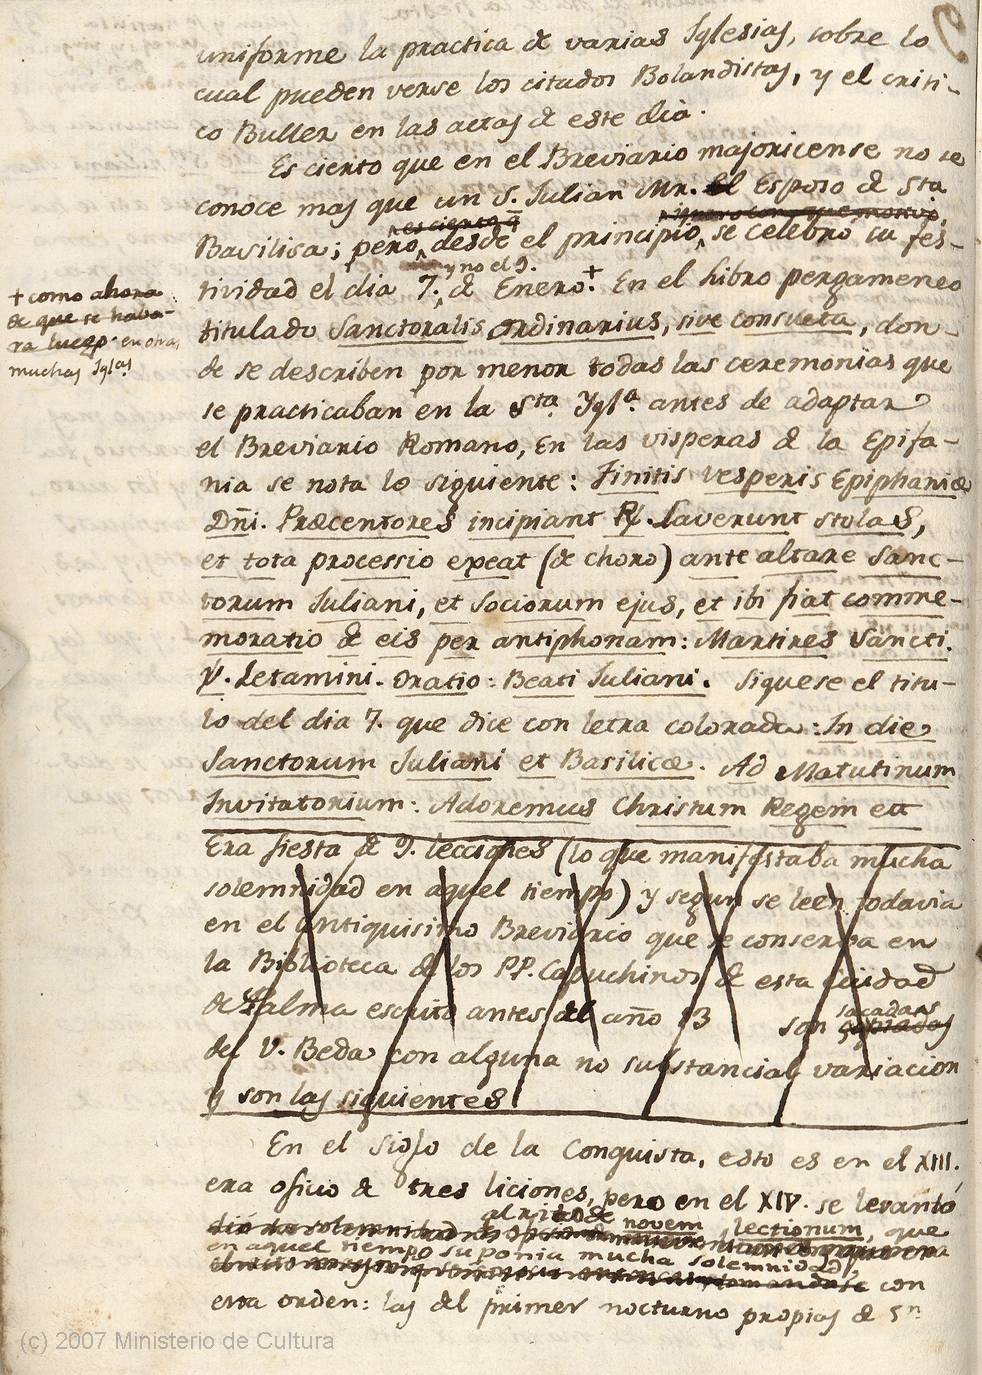 uniforme la practica de varias Iglesias, sobre lo
cual pueden verse los citados Bolandistas, y el criti-
co Butler en las actas de este dia.
Es cierto que en el Breviario majoricense no se
conoce mas que un S. Julian Mr. El Esposo de Sta
Basilisa; pero, es cierto q̄ desde el principio, se celebró su fes-
tividad el dia 7. y no el 9. de Enero.+ En el libro pergameneo
+ como ahora
de que se habla-
ra luego. en otras
muchas Iglas
titulado Sanctoralis ordinarius, sive consueta, don
de se describen por menor todas las ceremonias que
se practicaban en la Sta. Igla. antes de adaptar
el Breviario Romano, En las visperas de la Epifa-
nia se nota lo siguiente: Finitis vesperis Epiphaniæ
Dñi. Præcentores incipiant ℟. Laverunt stolas,
et tota processio exeat (de choro) ante altare Sanc-
torum Juliani, et Sociorum ejus, et ibi fiat comme-
moratio de eis per antiphonam: Martires Sancti.
℣. Letamini. Oratio: Beati Juliani. Siguese el titu-
lo del dia 7. que dice con letra colorada: In die
Sanctorum Juliani et Basilicæ. Ad Matutinum
Invitatorium: Adoremus Christum Regem ett
Era fiesta de 9. lecciones (lo que manifestaba mucha
solemnidad en aquel tiempo) y segun se leen todavia
en el antiquisimo Breviario que se conserva en
la Biblioteca de los PP. Capuchinos de esta Ciudad
de Palma escrito antes del año 13 son sacadas
del V. Beda con alguna no substancial variacion
y son las siguientes
En el Siglo de la Conquista, esto es en el XIII.
era oficio de tres liciones, pero en el XIV. se levantó
al rito de novem lectionum, que
en aquel tiempo suponia mucha solemnidad,
con
esta orden: las del primer nocturno propias de Sn.
(c) 2007 Ministerio de Cultura